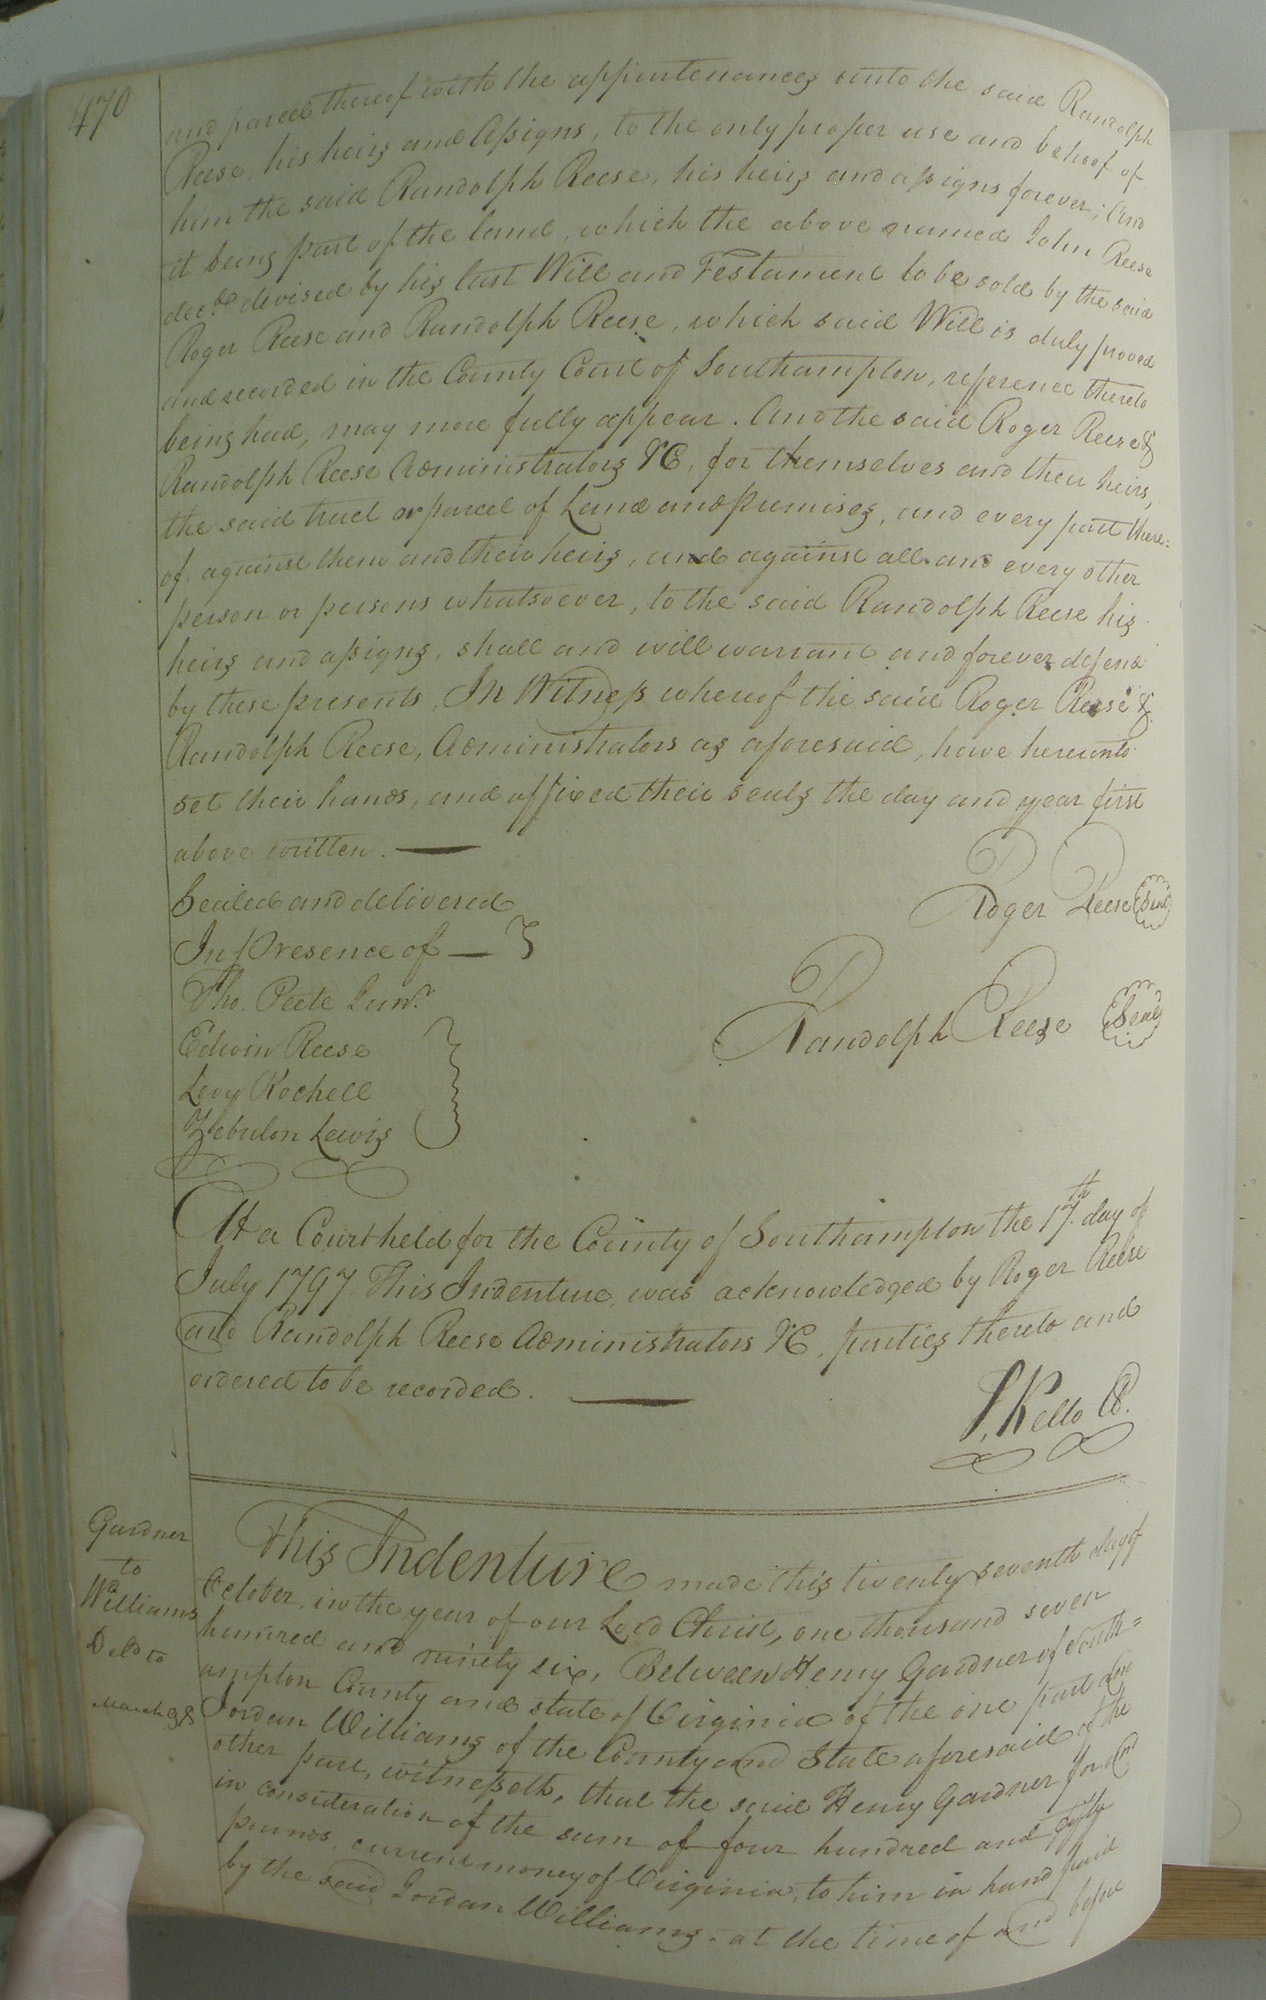 470
and parcel thereof with the appurtenances unto the said Randolph
Reese, his heirs and assigns, to the only proper use and behoof of
him the said Randolph Reese, his heirs and assigns forever; And
it being part of the land, which the above named John Reese
dec.ed devised by his last Will and Testament to be sold by the said
Roger Reese and Randolph Reese, which said Will is duly proved
and recorded in the County Court of Southampton, reference thereto
being had, may more fully appear. And the said Roger Reese &
Randolph Reese Administrators &C, for themselves and their heirs,
the said tract or parcel of Land and premises, and every part there=
of, against them and their heirs, and against all and every other
person or persons whatsoever, to the said Randolph Reese his
heirs and assigns, shall and will warrant and forever defend
by these presents, In Witness whereof the said Roger Reese &
Randolph Reese, Administrators as aforesaid, have hereunto
set their hands, and affixed their seals the day and year first
above written.
Sealed and delivered
In Presence of
Roger Reese Seal
Tho. Peete Junr.
Edwin Reese
Levy Rochell
Zebulon Lewis
Randolph Reese Seal
At a Court held for the County of Southampton the 17th. day of
July 1797 This Indenture was acknowledged by Roger Reese
and Randolph Reese Administrators &C, parties thereto and
ordered to be recorded.
S, Kello C.
Gardner
to
Williams
Deld to
March 98
This Indenture made this twenty seventh day of
October, in the year of our Lord Christ, one thousand seven
hundred and ninety six, Between Henry Gardner of South=
ampton County and state of Virginia of the one part and
Jordan Williams of the County and State aforesaid of the
other part, witnesseth, that the said Henry Gardner for and
in consideration of the sum of four hundred and fifty
pounds current money of Virginia, to him in hand paid
by the said Jordan Williams at the time of and before